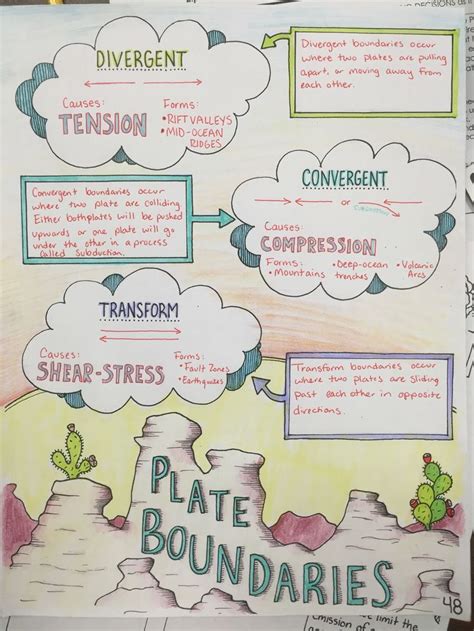 DIVERGENT
Causes:
TENSION
Forms:
• RIFT VALLEYS
• MID-OCEAN
RIDGES
Divergent boundaries occur
where two plates are pulling
apart, or moving away from
each other.
CONVERGENT
or
Causes:
COMPRESSION
Forms:
• Mountains
• Deep-ocean
trenches
• Volcanic
Arcs
Convergent boundaries occur
where two plate are colliding
Either bothplates will be pushed
upwards or one plate will go
under the other in a process
called Subduction.
TRANSFORM
Causes:
SHEAR-STRESS
Forms:
• Fault Zones
• Earthquakes
Transform boundaries occur
where two plates are sliding
past each other in opposite
directions.
PLATE
BOUNDARIES
48